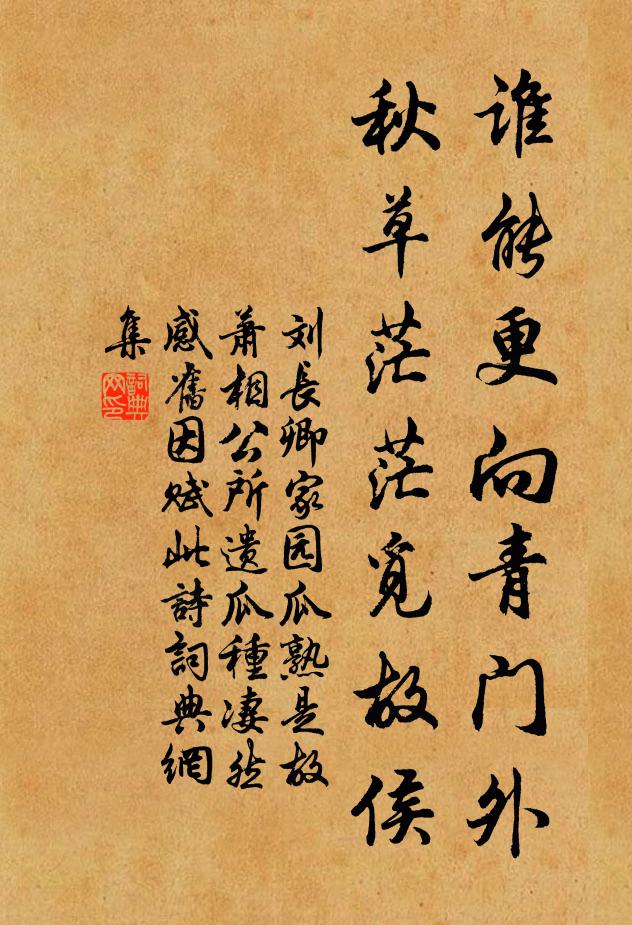 谁能更向青门外
秋草茫茫觅故侯
刘長卿家园瓜熟是故
萧相公所遗瓜種凄然
感舊因赋此詩詞典網
集
詞典
网印